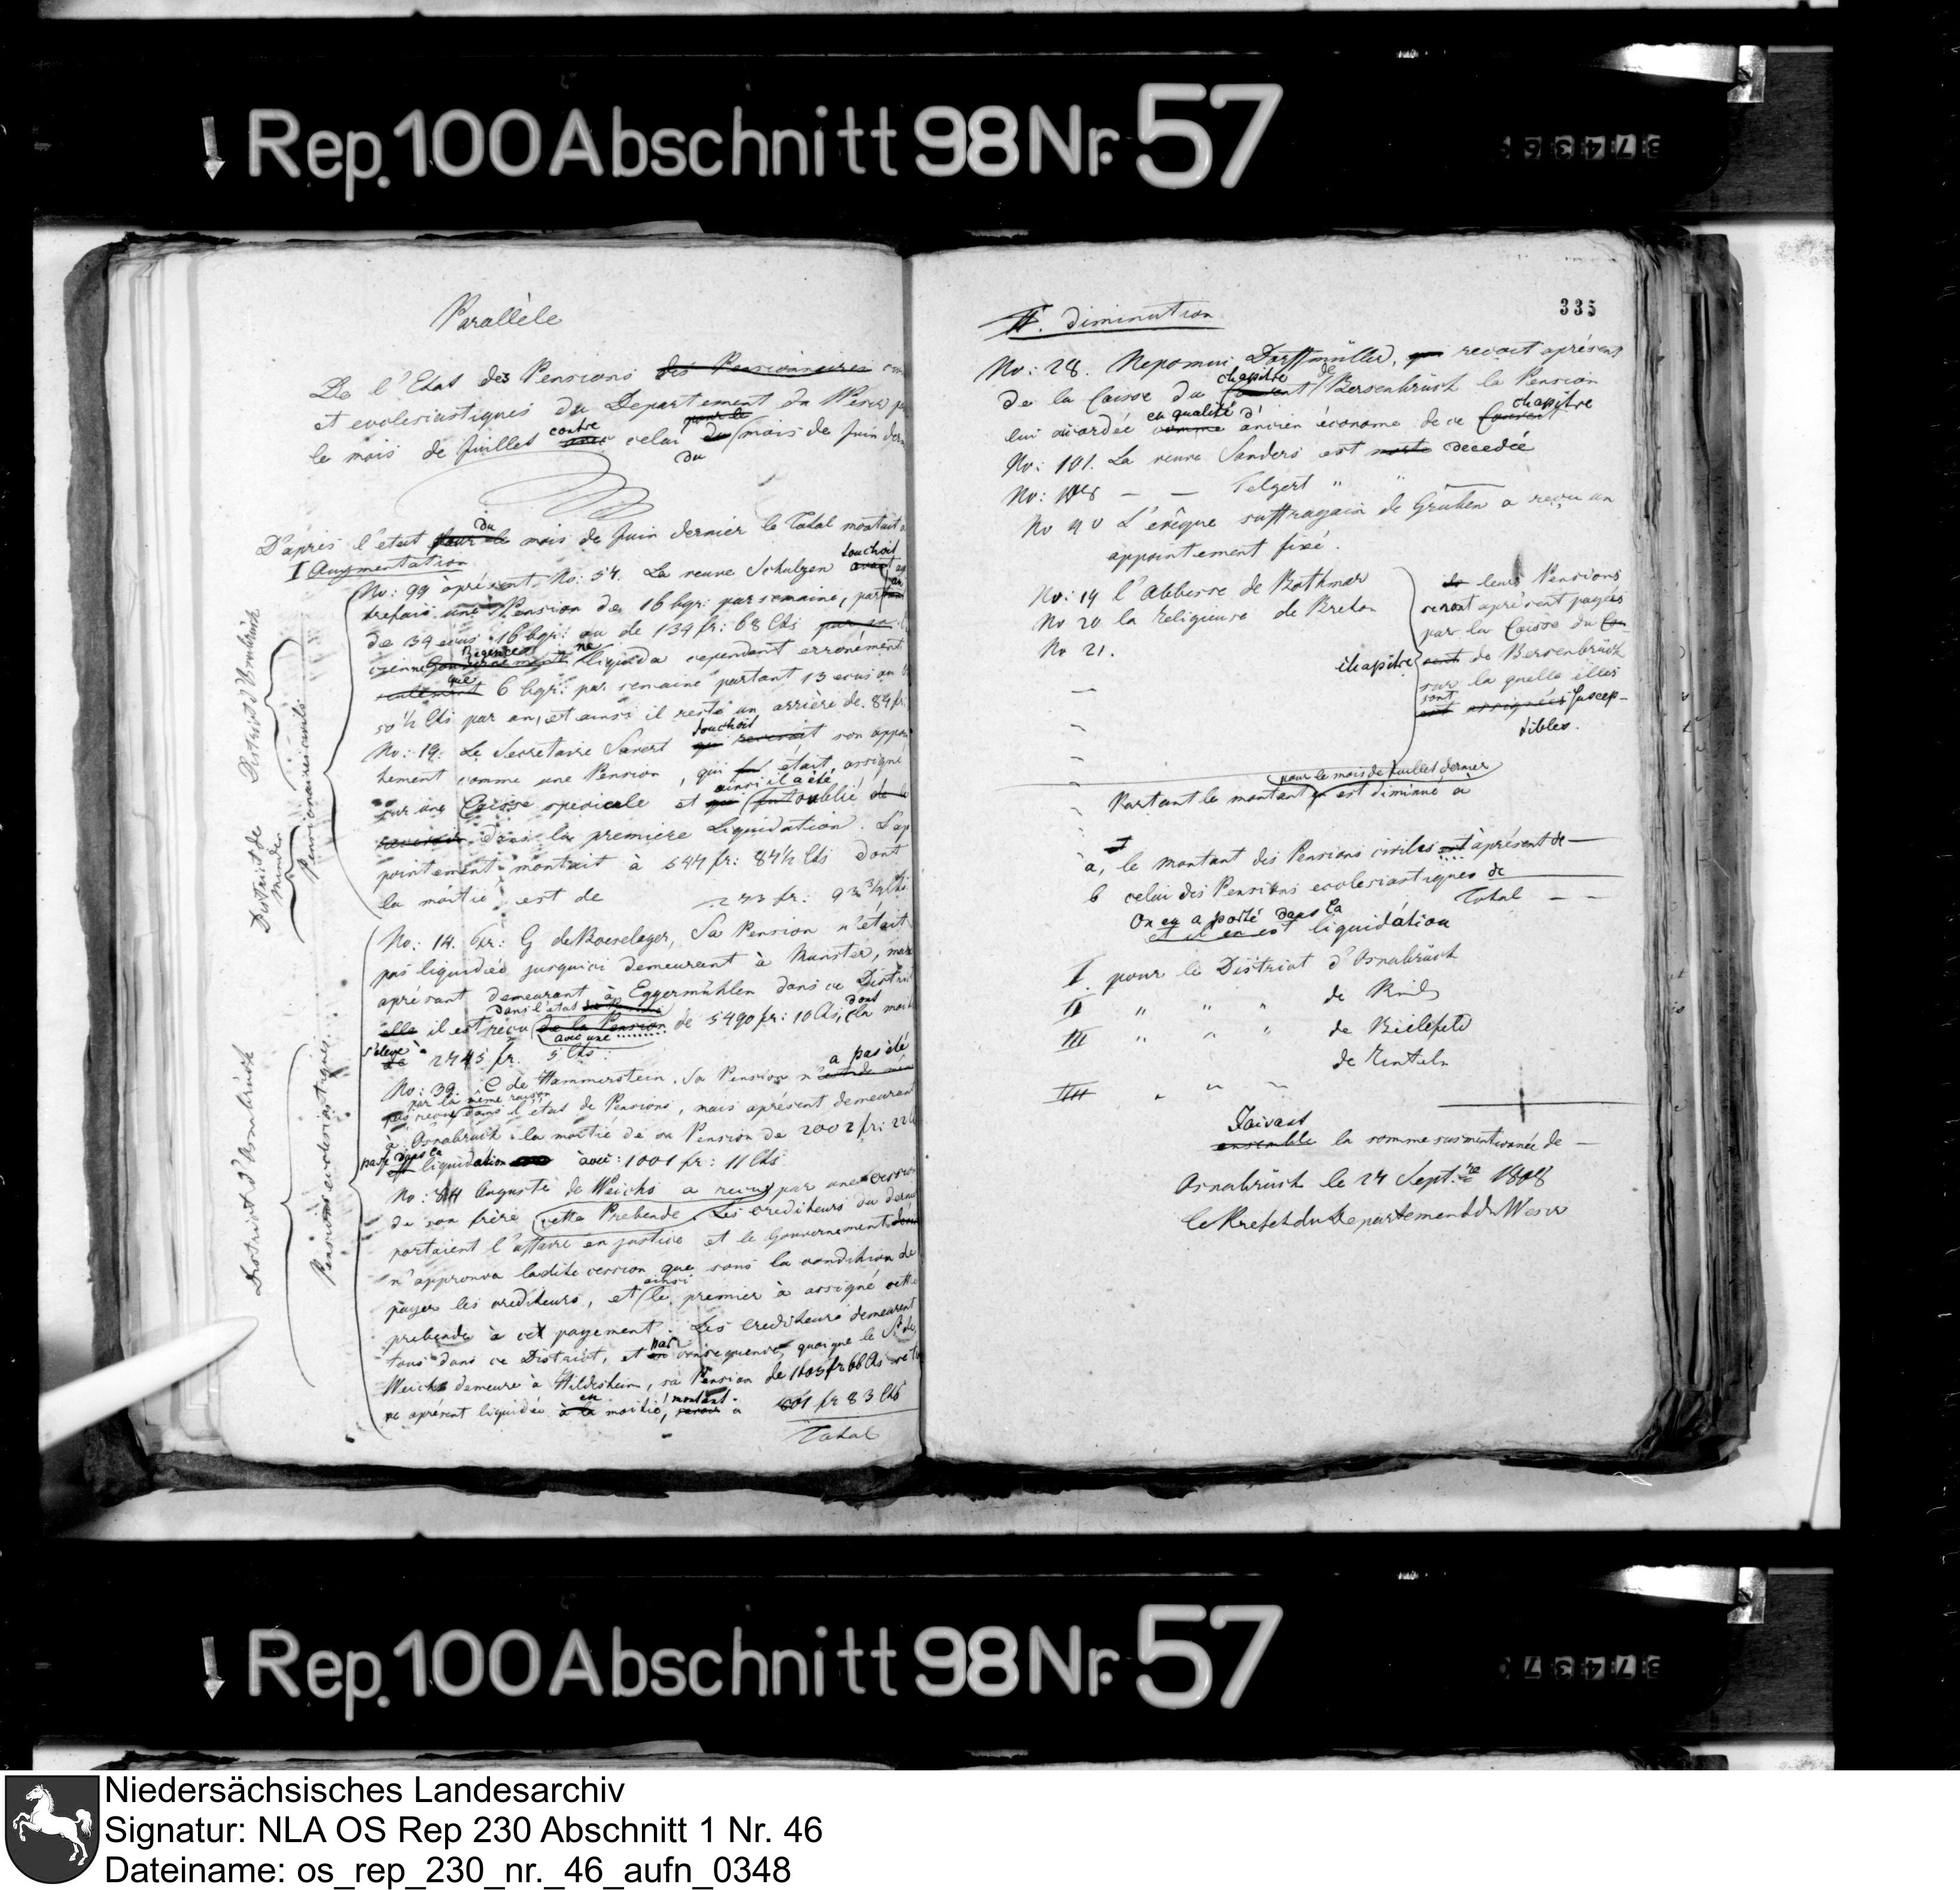 Rep. 100 Abschnitt 98 Nr. 57
Parallèle
De l'Etat des Pensions des Pensionnaires
et ecclesiastiques du Departement du Weser
pour le
le mois de Juillet contre celui du mois de Juin
du
D'après l'etat pour le du mois de Juin dernier le Total montait
I Augmentation
No: 99 àprésent No: 54. La veuve Schulzen avait touchoit
une Pension de 16 bgr: par semaine,
de 34 ecus 16 bgr: ou de 134 fr: 68 Cts
Gouvernement Regence ne liquida cependant erronément
seulement que 6 bgr: par semaine partant 13 ecus
50 1/2 Cts par an, et ainsi il reste un arrière de 84 fr.
No: 19: Le Secretaire touchoit qui recevait son appoin
tement comme une Pension, qui fut était assigné
sur une Caisse speciale et qui ainsi il a été fut oublié de
dans la première Liquidation. L'ap
pointement montait à 544 fr: 84 1/2 Cts dont
la moitié est de
No: 14. G de Boeselager, Sa Pension n'était
pas liquidée jusqu'ici demeurant à Munster, mais
aprésant demeurant à Eggermühlen dans ce District
elle il est reçu dans l'état de la Pension avec une de 5490 fr: 10 Cts, dont la moitié
s'élève à de 2745 fr. 5 Cts:
No: 39. C de Hammerstein. Sa Pension n'a pas été
par la même raison
pas reçu dans l'état de Pensions, mais aprésent demeurant
à Osnabruck la moitié de sa Pension de 2002 fr: 22
passé dans la liquidation avec: 1001 fr: 11 Cts.
No: 44 Auguste de Weichs a reçu par une cession
de son frère cette Prebende. Les crediteurs du dernier
portaient l'affaire en justice et le Gouvernement
n'approuva ladite cession que sous la condition de
payer les crediteurs, et ainsi le premier à assigné cette
prebende à cet payement. Les Crediteurs demeurent
tous dans ce District, et par consequence, quoique le Sr de
Weichs demeure à Hildesheim, sa Pension de 1603 fr 66 Cts
aprésent liquidée à la en moitié, montant à 801 fr 83 Cts
Total
District d'Osnabrück
Pensionaires civils
District de
Minden
District d'Osnabrück
Pensions ecclesiastiques
335
II. diminution
No: 28. Nepomuc Dorffmüller, qui recoit aprésent
de la Caisse du Couvent chapitre de Bersenbrück la Pension
lui accordée comme en qualité d'ancien économe de ce Couvent chapitre
No: 101. La veuve Sanders est morte decedée
No: — — Telgert " "
No 40 L'evêque suffragain de Gruben a reçu un
appointement fixé.
No: 19 l'Abbesse de Bothmar
No 20 la Religieuse de Breton
No 21.
leurs Pensions
seront aprésent payées
par la Caisse du Cou-
vent chapitre de Bersenbrück
sur la quelle elles
sont assignées suscep-
tibles.
pour le mois de Juillet dernier
Partant le montant est diminué à
a, le montant des Pensions civiles est àprésent de —
b celui des Pensions ecclesiastiques de
Total — —
On en a porté dans la
et il en est liquidation
I. pour le District d'Osnabrück
II " " " de
III " " " de Bielefeld
IIII " " " de Rinteln
Faivant
ensemble la somme susmentionnée de —
Osnabrück le 24 Sept.bre 1808
le Prefet du Departement du Weser
Rep. 100 Abschnitt 98 Nr. 57
Niedersächsisches Landesarchiv
Signatur: NLA OS Rep 230 Abschnitt 1 Nr. 46
Dateiname: os_rep_230_nr._46_aufn_0348